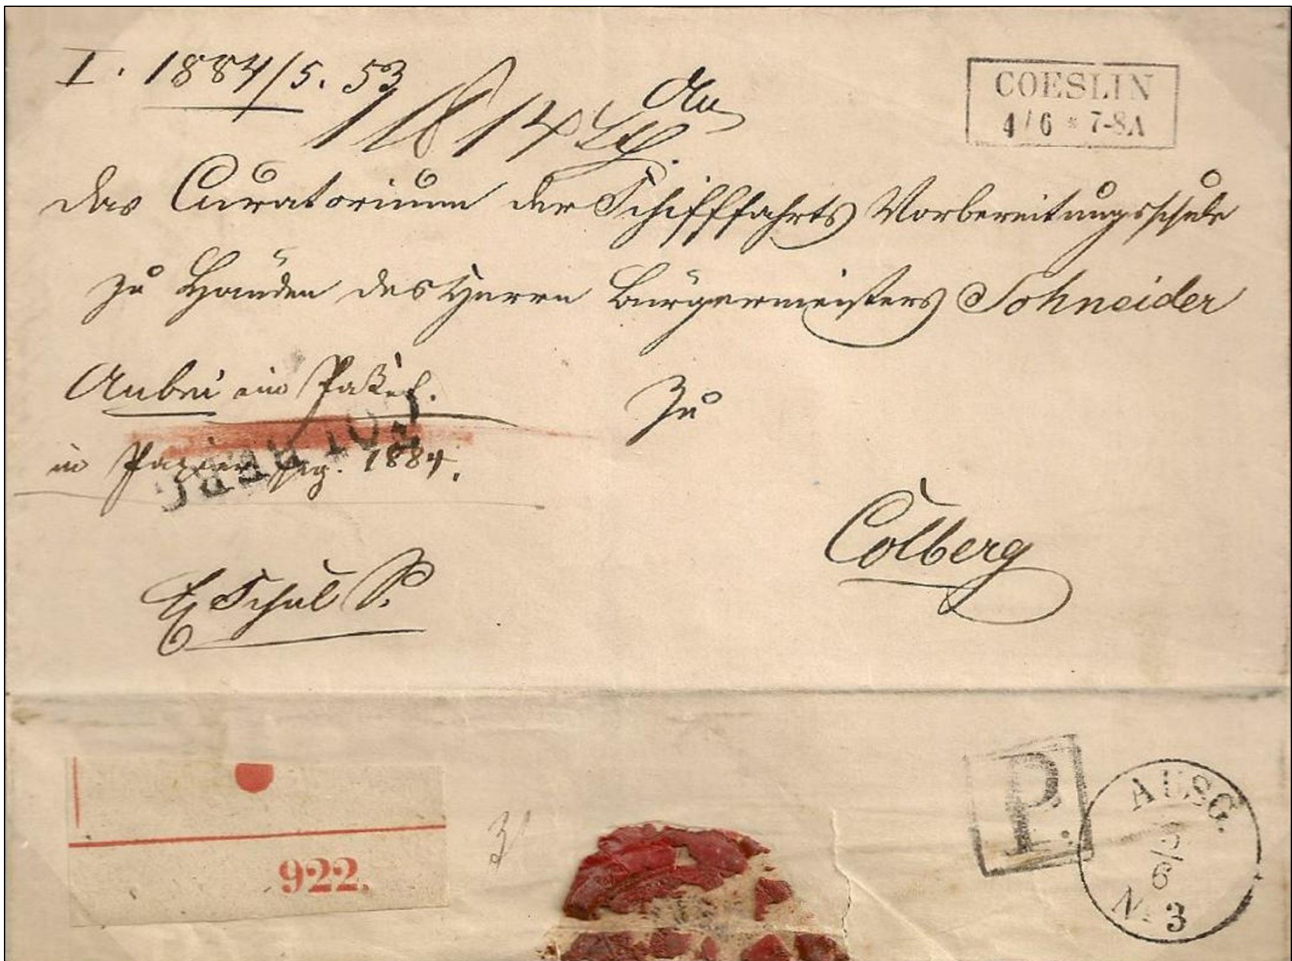 I. 1884/5. 53
COESLIN
4/6 * 7-8A
An
das Curatorium der Schifffahrts Vorbereitungsschule
zu Händen des Herrn Bürgermeisters Schneider
Anbei ein Paket.
Zu
in Papier sig. 1884.
Colberg
Schul S.
922.
3
P.
AUSG.
5/6
N. 3